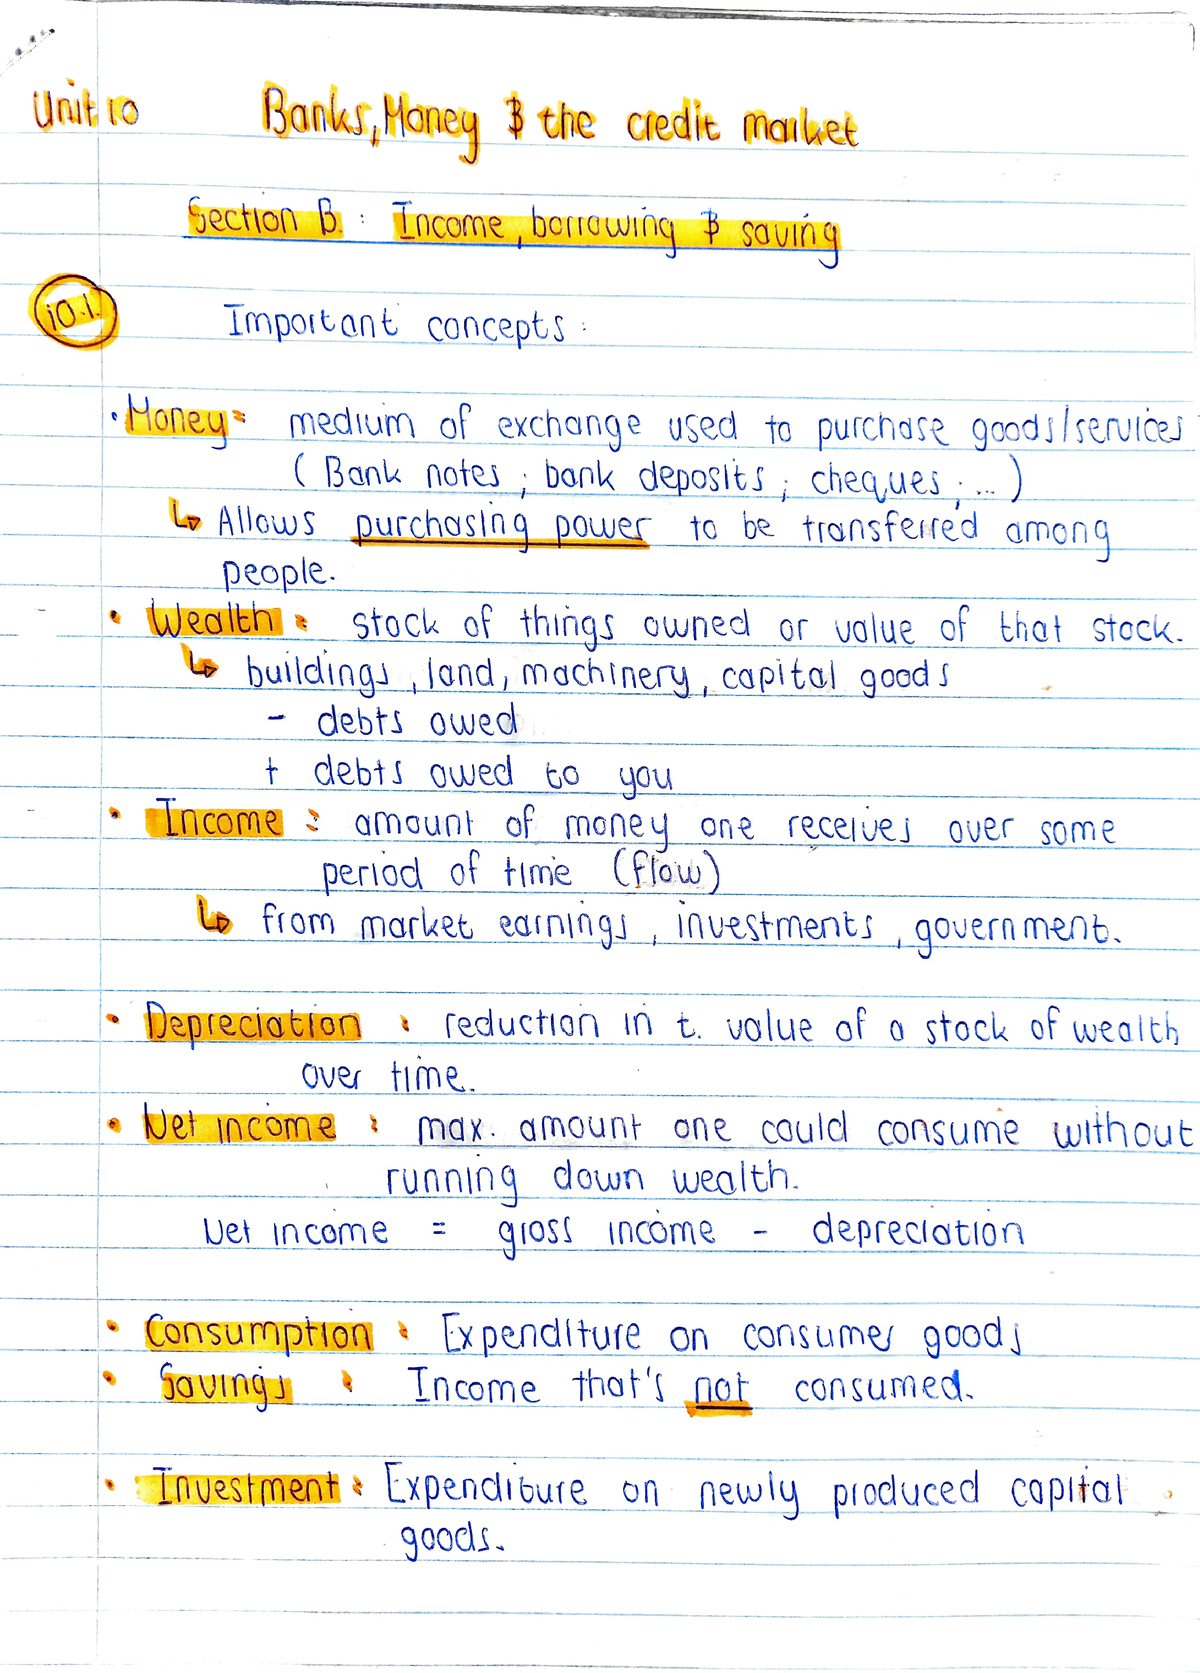 Unit 10 Banks, Money & the credit market
Section B : Income, borrowing & saving
10.1. Important concepts :
• Money : medium of exchange used to purchase goods/services
( Bank notes ; bank deposits ; cheques ; ... )
↳ Allows purchasing power to be transferred among
people.
• Wealth : stock of things owned or value of that stock.
↳ buildings, land, machinery, capital goods
- debts owed
+ debts owed to you
• Income : amount of money one receives over some
period of time (flow)
↳ from market earnings, investments, government.
• Depreciation : reduction in t. value of a stock of wealth
over time.
• Net income : max. amount one could consume without
running down wealth.
Net income = gross income - depreciation
• Consumption : Expenditure on consumer goods
• Savings : Income that's not consumed.
• Investment : Expenditure on newly produced capital
goods.